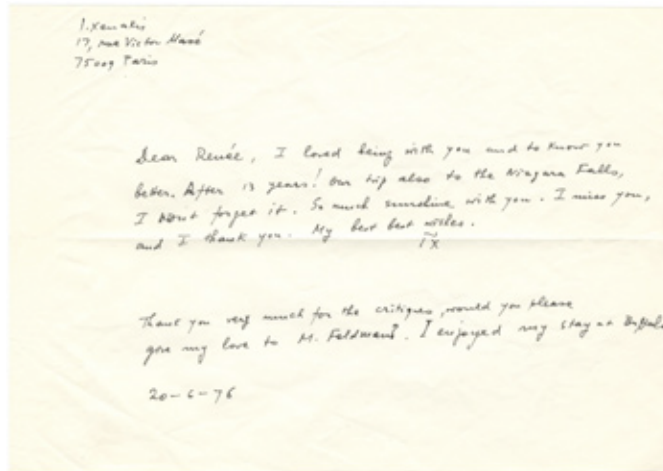 I. Xenakis
17, rue Victor Massé
75009 Paris
Dear Renée, I loved being with you and to know you
better. After 13 years! Our trip also to the Niagara Falls,
I wont forget it. So much sunshine with you. I miss you,
and I thank you. My best best wishes.
IX
Thank you very much for the critiques, would you please
give my love to M. Feldman? I enjoyed my stay at Buffalo
20-6-76